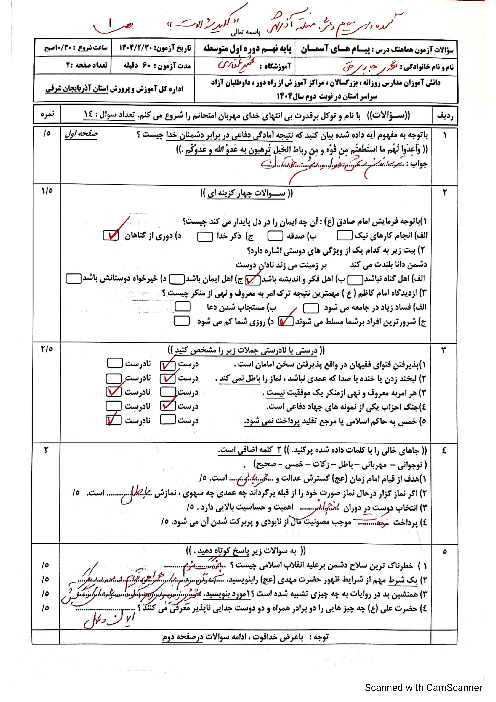 باسمه تعالی
سؤالات آزمون هماهنگ درس : پیـــام هـــای آســـمان
پایه نهم دوره اول متوسطه
تاریخ آزمون: ۱۴۰۴/۲/۳۰
ساعت شروع : ۱۰/۳۰صبح
نام و نام خانوادگی :
آموزشگاه :
مدت آزمون : ۶۰ دقیقه
تعداد صفحه : ۲
دانش آموزان مدارس روزانه ، بزرگسالان ، مراکز آموزش از راه دور ، داوطلبان آزاد
سراسر استان در نوبت دوم سال ۱۴۰۴
اداره کل آموزش و پرورش استان آذربایجان شرقی
ردیف
((ســـؤالات)) با نام و توکل برقدرت بی انتهای خدای مهربان امتحانم را شروع می کنم. تعداد سوال : ۱۴
نمره
۱
باتوجه به مفهوم آیه داده شده بیان کنید که نتیجه آمادگی دفاعی در برابر دشمنان خدا چیست ؟
صفحه اول
۰/۵
(( وَاَعِدّوا لَهُم ما استَطَعتُم مِن قُوَّه و مِن رِباطِ الخَیلِ تُرهِبونَ بِه عَدُوَّ الله و عَدُوَّکُم .))
جواب :
۲
(( ســـوالات چهار گزینه ای ))
۱/۵
۱)باتوجه فرمایش امام صادق (ع) : آن چه ایمان را در دل پایدار می کند چیست؟
الف) انجام کارهای نیک ب) صدقه ج) ذکر خدا د) دوری از گناهان
۲) بیت زیر به کدام یک از ویژگی های دوستی اشاره دارد؟
دشمن دانا بلندت می کند بر زمینت می زند نادان دوست
الف) اهل گناه نباشد ب) اهل فکر و اندیشه باشد ج) اهل ایمان باشد د) خیرخواه دوستانش باشد
۳) ازدیدگاه امام کاظم ( ع ) مهمترین نتیجه ترک امر به معروف و نهی از منکر چیست ؟
الف) فساد زیاد در جامعه می شود ب) مستجاب شدن دعا
ج) شرورترین افراد برشما مسلط می شوند د) روزی شما کم می شود
۳
(( درستی یا نادرستی جملات زیر را مشخص کنید ))
۲/۵
۱)پذیرفتن فتوای فقیهان در واقع پذیرفتن سخن امامان است . درست نادرست
۲) لبخند زدن یا خنده با صدا که عمدی نباشد ، نماز را باطل نمی کند . درست نادرست
۳) هر امربه معروف و نهی ازمنکر یک موفقیت نیست . درست نادرست
۴)جنگ احزاب یکی از نمونه های جهاد دفاعی است. درست نادرست
۵) خمس به حاکم اسلامی یا مرجع تقلید پرداخت نمی شود. درست نادرست
٤
(( جاهای خالی را با کلمات داده شده پرکنید. )) ۲ کلمه اضافی است.
۲
( نوجوانی – مهربانی – باطل – زکات – خمس – صحیح)
۱)هدف از قیام امام زمان (عج) گسترش عدالت و مهربانی است. ۰/۵
۲) اگر نماز گزار درحال نماز صورت خود را از قبله برگرداند چه عمدی چه سهوی ، نمازش باطل است. ۰/۵
۳) انتخاب دوست در دوران نوجوانی اهمیت و حساسیت بالایی دارد . ۰/۵
۴) پرداخت موجب مصونیت مال از نابودی و پربرکت شدن آن می شود. ۰/۵
٥
(( به سوالات زیر پاسخ کوتاه دهید . ))
۱ ) خطرناک ترین سلاح دشمن برعلیه انقلاب اسلامی چیست ؟ ۰/۵
۲) یک شرط مهم از شرایط ظهور حضرت مهدی (عج) رابنویسید. ۰/۵
۳) همنشین بد در روایات به چه چیزی تشبیه شده است ؟ ۱مورد بنویسید. ۰/۵
۴) حضرت علی (ع) چه چیز هایی را دو برادر همراه و دو دوست جدایی ناپذیر معرفی می کنند ؟ ۰/۵
ایمان و عمل
توجه : باعرض خداقوت ، ادامه سوالات درصفحه دوم
Scanned with CamScanner